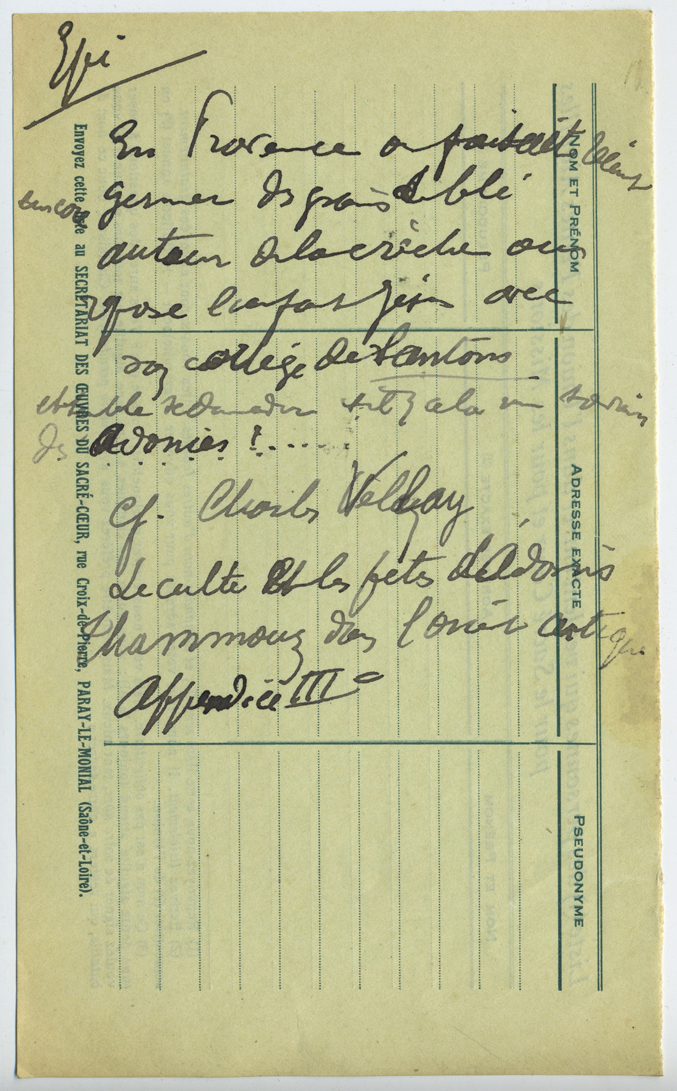 Epi
En Provence on faisait
encore germer des grains de blé
autour de la crèche où
repose l'enfant Jésus avec
son cortège de Santons
et semble se demander s'il y a là un
des Adonies ! . . . . .
cf. Charles Vellay
Le culte et les fêtes d'Adonis
Thammouz dans l'orient antique
Appendice III
NOM ET PRÉNOM
ADRESSE EXACTE
PSEUDONYME
Envoyez cette au SECRÉTARIAT DES ŒUVRES DU SACRÉ-CŒUR, rue Croix-de-Pierre, PARAY-LE-MONIAL (Saône-et-Loire).